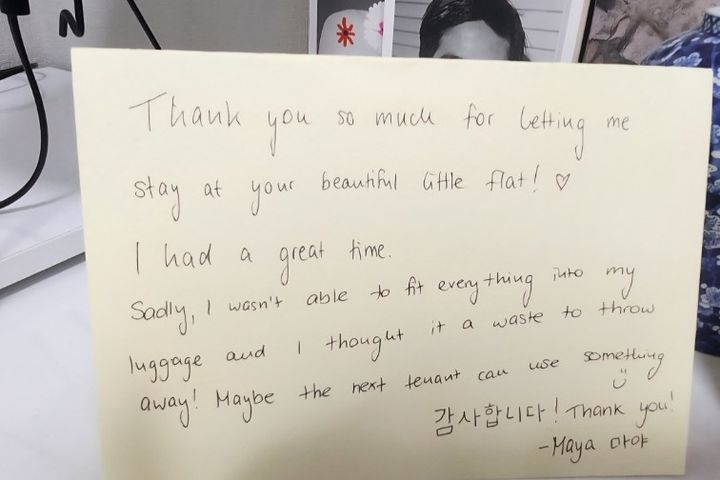 Thank you so much for letting me
stay at your beautiful little flat! ♡
I had a great time.
Sadly, I wasn't able to fit everything into my
luggage and I thought it a waste to throw
away! Maybe the next tenant can use something
감사합니다! Thank you!
-Maya 마야